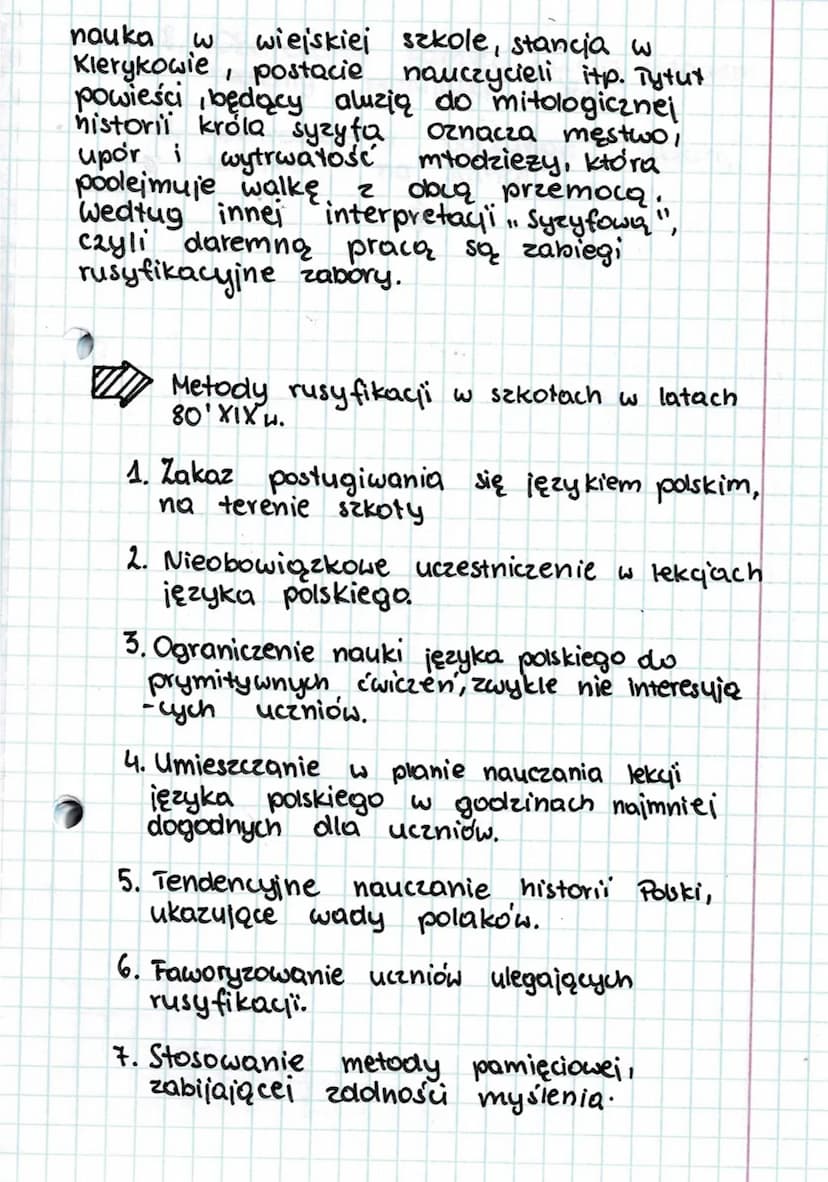 nauka w wiejskiej szkole, stancja w
Klerykowie, postacie nauczycieli itp. Tytuł
powieści, będący aluzją do mitologicznej
historii króla syzyfa oznacza męstwo,
upór i wytrwałość młodzieży, która
podejmuje walkę z obcą przemocą.
Według innej interpretacji „Syzyfową",
czyli daremną pracą są zabiegi
rusyfikacyjne zabory.
Metody rusyfikacji w szkołach w latach
80' XIX w.
1. Zakaz posługiwania się językiem polskim,
na terenie szkoły
2. Nieobowiązkowe uczestniczenie w lekcjach
języka polskiego.
3. Ograniczenie nauki języka polskiego do
prymitywnych ćwiczeń, zwykle nie interesują
-cych uczniów.
4. Umieszczanie w planie nauczania lekcji
języka polskiego w godzinach najmniej
dogodnych dla uczniów.
5. Tendencyjne nauczanie historii Polski,
ukazujące wady polaków.
6. Faworyzowanie uczniów ulegających
rusyfikacji.
7. Stosowanie metody pamięciowej,
zabijającej zdolności myślenia.